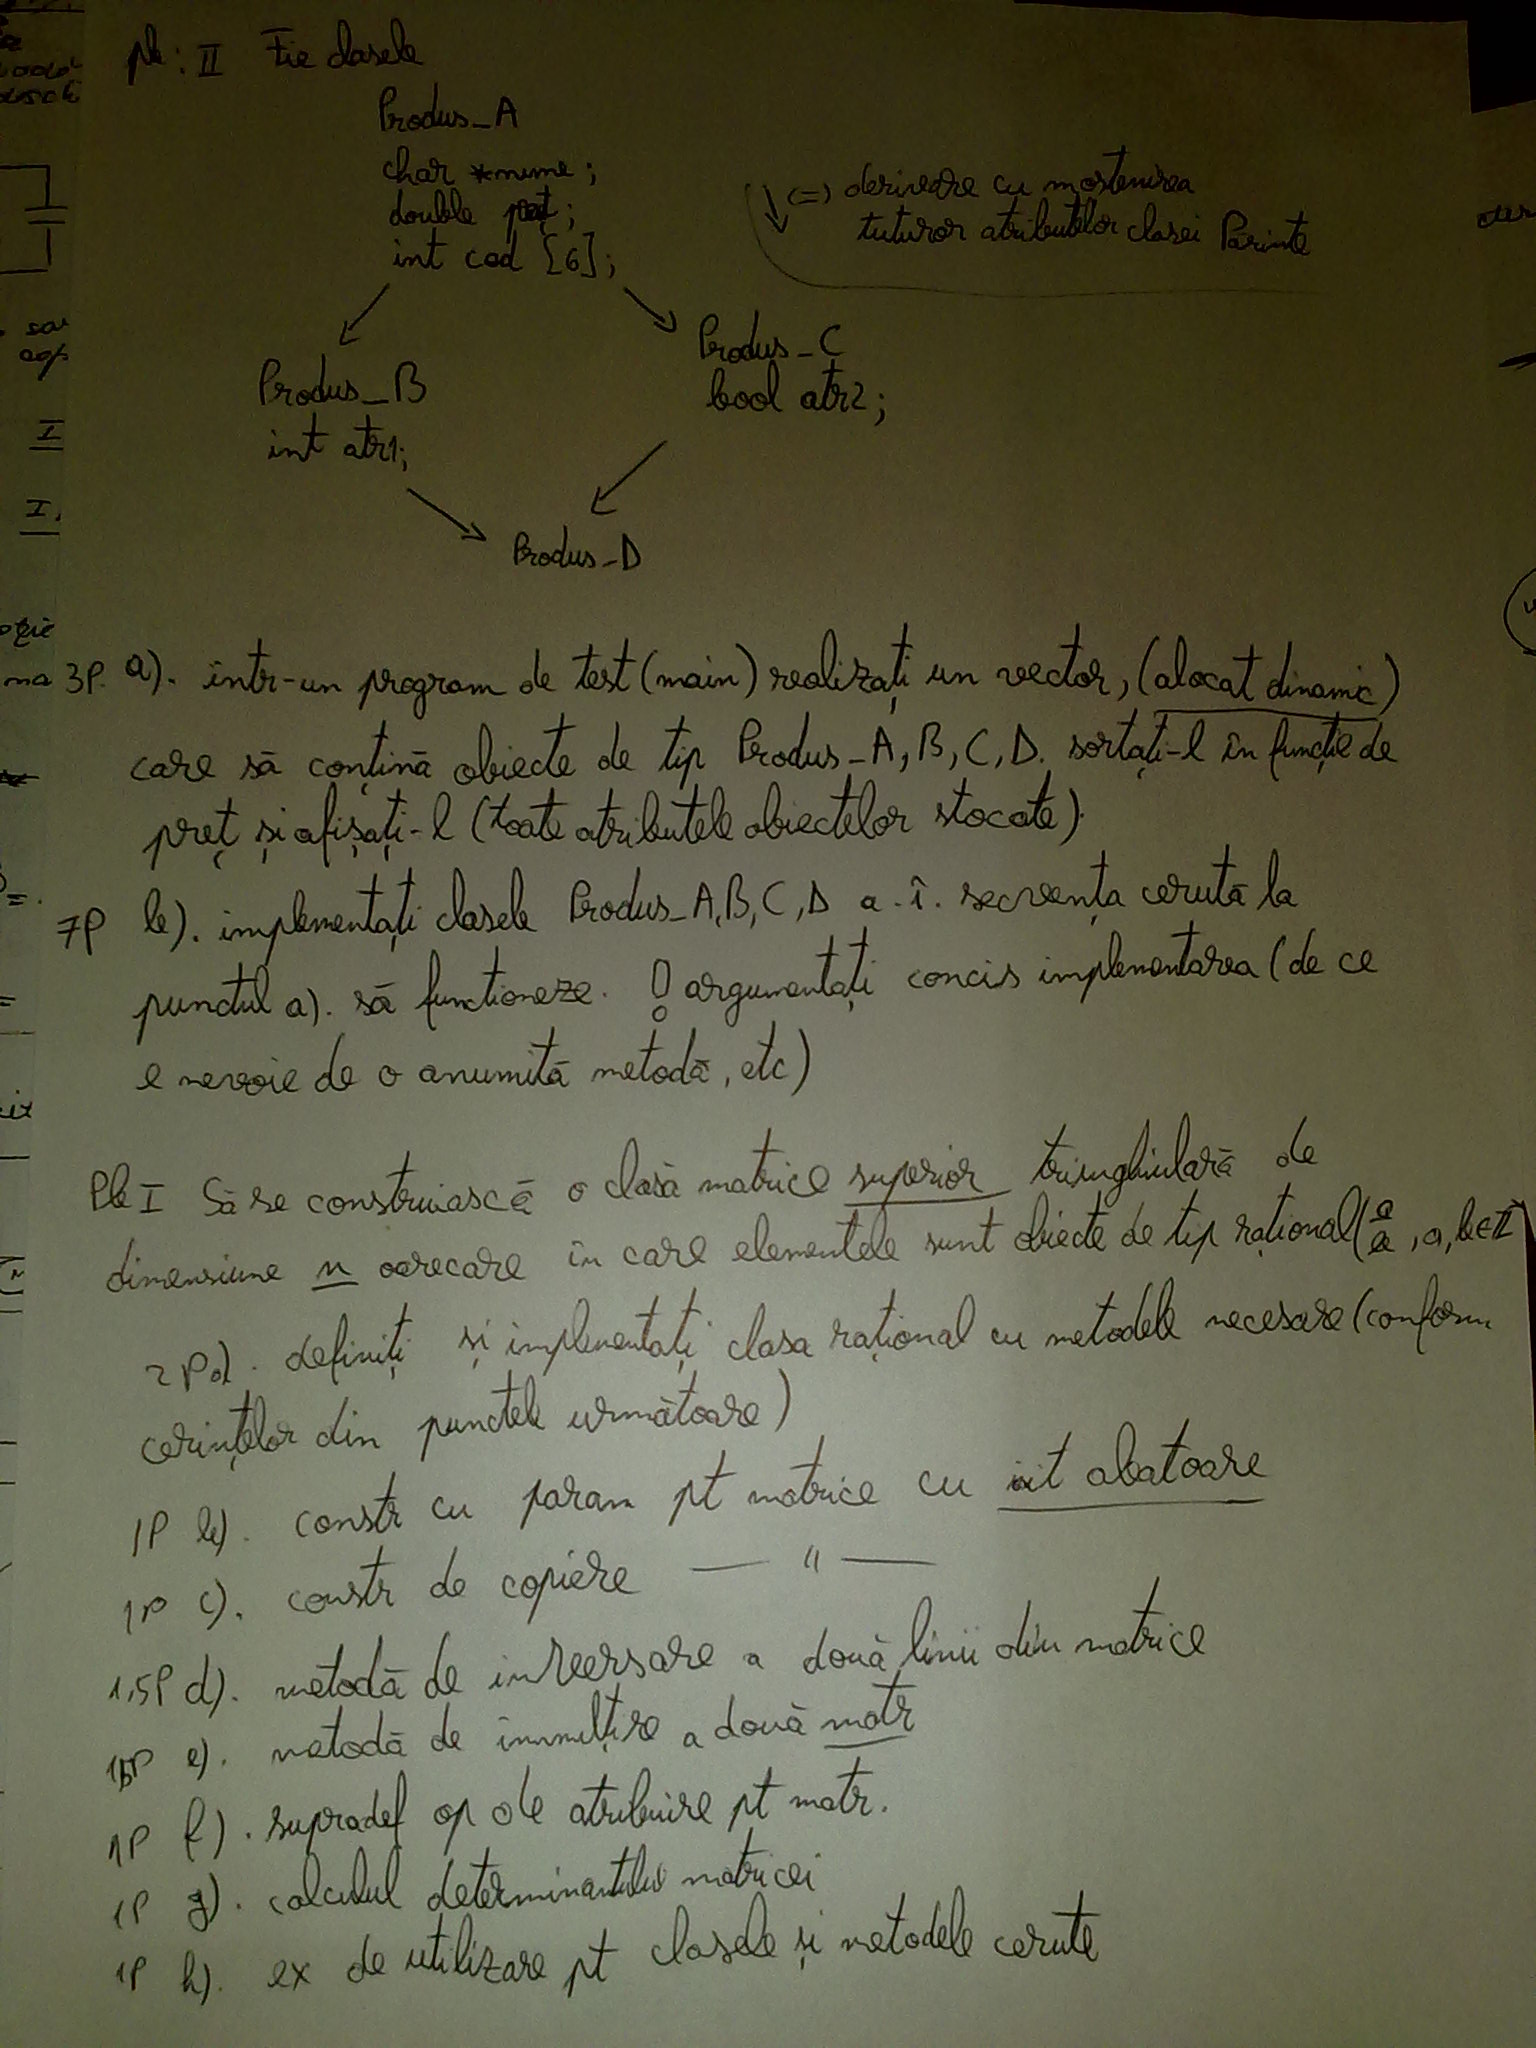 Pb: II Fie clasele
Produs_A
char *nume;
double preț;
int cod [6];
↓ (=) derivare cu moștenirea
tuturor atributelor clasei Părinte
Produs_B
int atr1;
Produs_C
bool atr2;
Produs_D
3P. a). într-un program de test (main) realizați un vector, (alocat dinamic)
care să conțină obiecte de tip Produs_A, B, C, D. sortați-l în funcție de
preț și afișați-l (toate atributele obiectelor stocate).
7P b). implementați clasele Produs_A, B, C, D a.î. secvența cerută la
punctul a). să functioneze. ! argumentați concis implementarea (de ce
e nevoie de o anumită metodă, etc)
Pb I Să se construiască o clasă matrice superior triunghiulară de
dimensiune n oarecare în care elementele sunt obiecte de tip rațional (, a, b∈Z
2P a). definiți și implementați clasa rațional cu metodele necesare (conform
cerințelor din punctele următoare)
1P b). constr cu param pt matrice cu nit abatoare
1P c). constr de copiere — " —
1,5P d). metodă de inversare a două linii din matrice
1,5P e). metodă de înmulțire a două matr
1P f). supradef op de atribuire pt matr.
1P g). calculul determinantului matricei
1P h). ex de utilizare pt clasele și metodele cerute